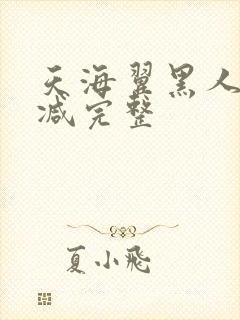 天海翼黑人
减完整
夏小飛